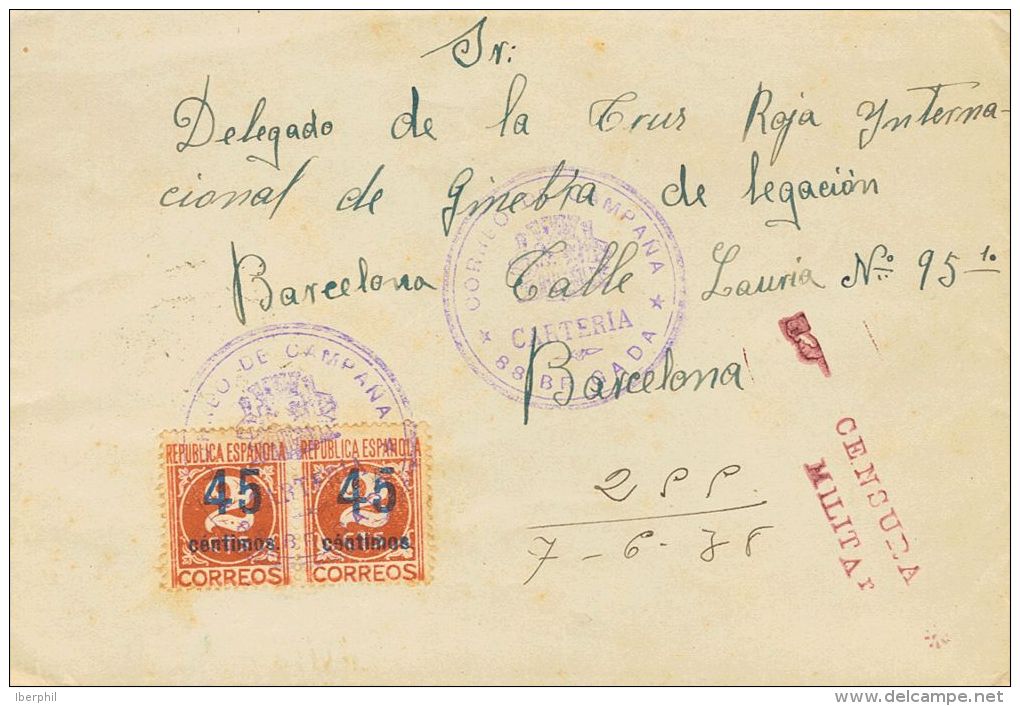 Sr:
Delegado de la Cruz Roja Ynterna-
cional de Ginebra de legación
Barcelona Calle Lauria Nº 95-1º
Barcelona
CORREO DE CAMPAÑA
CARTERIA
★ 88 BRIGADA ★
CENSURA
MILITAR
2 P.P.
7-6-38
REO DE CAMPAÑA
REPUBLICA ESPAÑOLA REPUBLICA ESPAÑOLA
45 45
2 2
céntimos céntimos
CORREOS CORREOS
Iberphil
www.delcampe.net